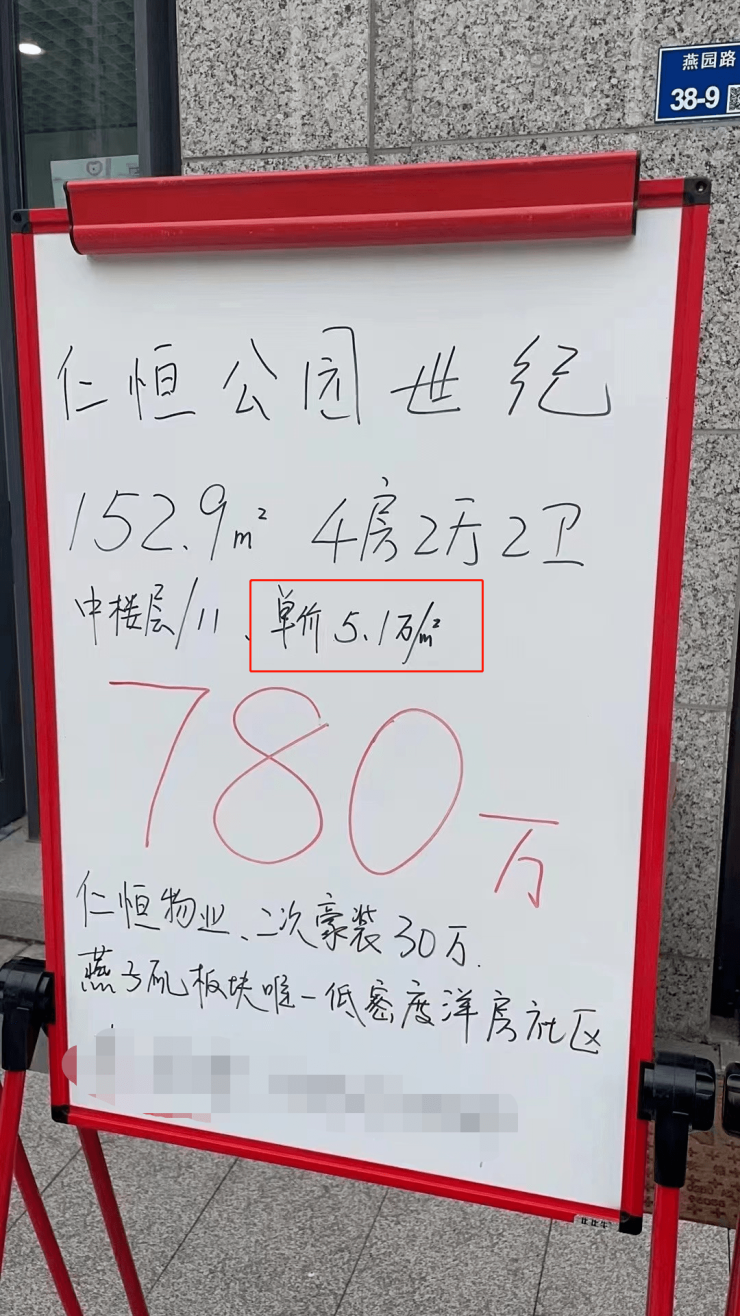 燕园路
38-9
仁恒公园世纪
152.9m² 4房2厅2卫
中楼层/11、单价5.1万/m²
780万
仁恒物业、二次豪装30万.
燕子矶板块唯一低密度洋房社区